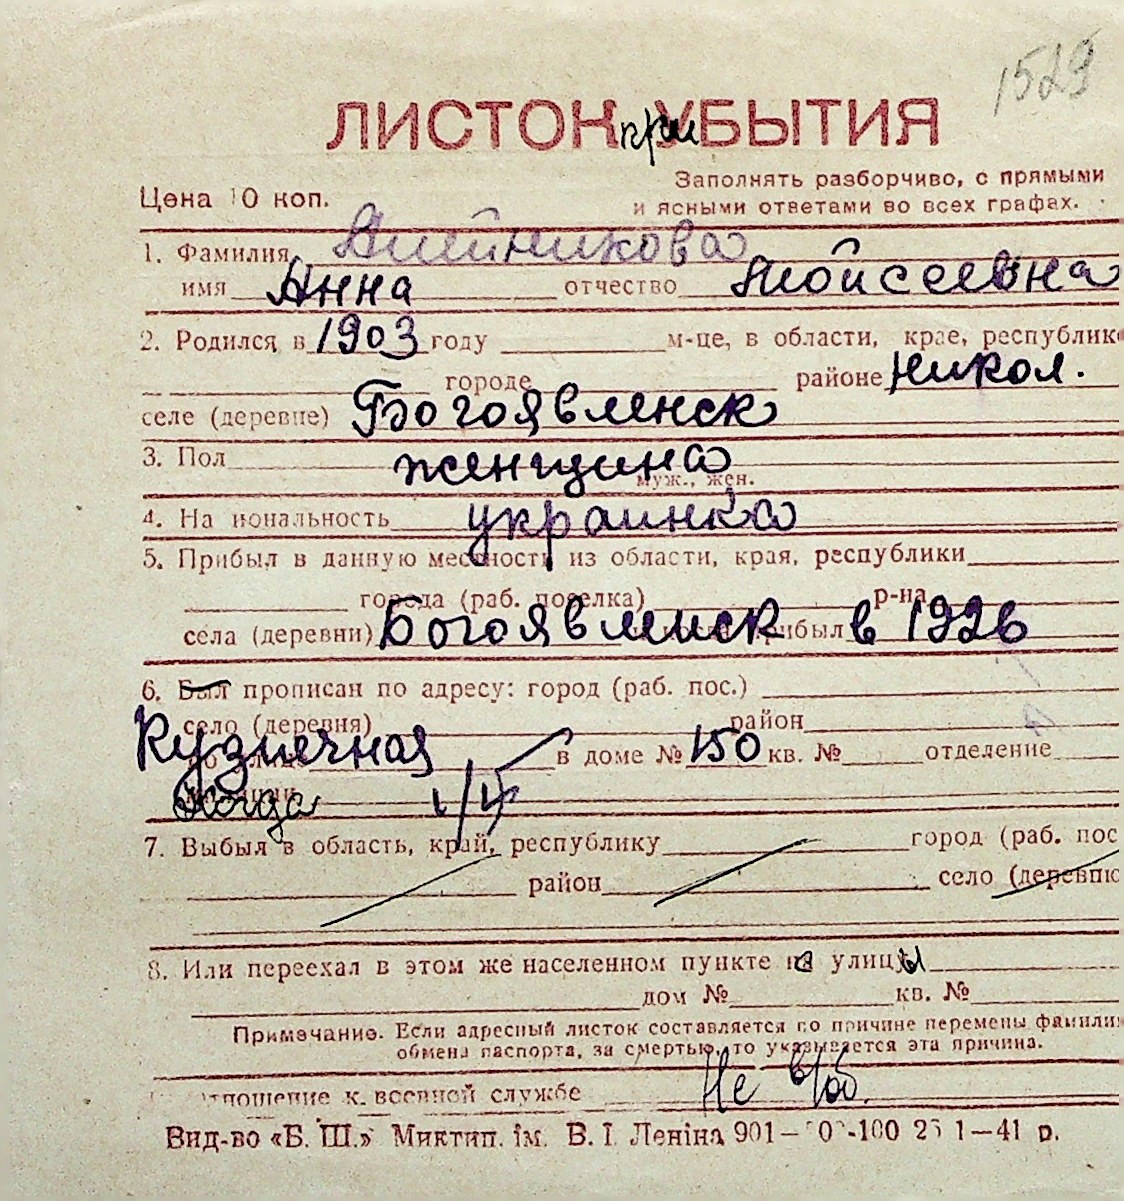 1529
ЛИСТОК УБЫТИЯ
при
Цена 10 коп.
Заполнять разборчиво, с прямыми
и ясными ответами во всех графах.
1. Фамилия Алейникова
имя Анна отчество Мойсеевна
2. Родился в 1903 году м-це, в области, крае, республик
городе районе Никол.
селе (деревне) Богоявленск
3. Пол женщина
муж., жен.
4. Национальность украинка
5. Прибыл в данную местность из области, края, республики
города (раб. поселка) р-на
села (деревни) Богоявленск прибыл в 1926
6. Был прописан по адресу: город (раб. пос.)
село (деревня) район
Кузнечная в доме № 150 кв. № отделение
милиции
Когда
7. Выбыл в область, край, республику город (раб. пос
район село (деревню
8. Или переехал в этом же населенном пункте на улицы
дом № кв. №
Примечание. Если адресный листок составляется по причине перемены фамилии
обмена паспорта, за смертью, то указывается эта причина.
отношение к военной службе Не в/об.
Вид-во «Б. Ш.» Миктип. ім. В. І. Леніна 901— 1—41 р.